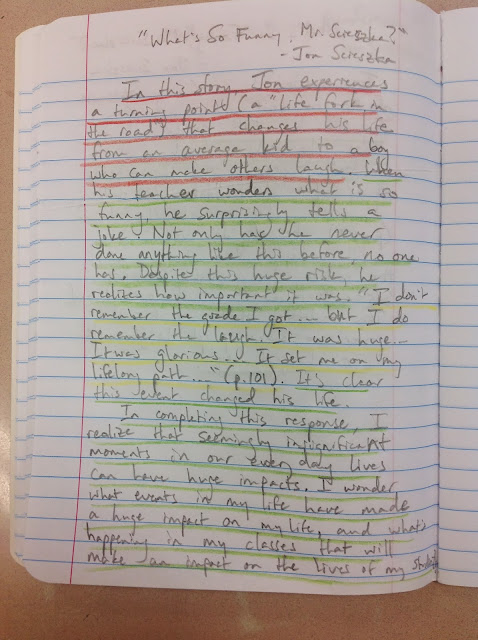 "What's So Funny, Mr. Scieszka?"
- Jon Scieszka
In this story, Jon experiences
a turning point (a "life fork in
the road") that changes his life
from an average kid to a boy
who can make others laugh. When
his teacher wonders what is so
funny, he surprizingly tells a
joke. Not only has he never
done anything like this before, no one
has. Despite this huge risk, he
realizes how important it was. "I don't
remember the grade I got... but I do
remember the laugh. It was huge...
It was glorious... It set me on my
lifelong path..." (p.101). It's clear
this event changed his life.
In completing this response, I
realize that seemingly insignificant
moments in our every day lives
can have huge impacts. I wonder
what events in my life have made
a huge impact on my life, and what's
happening in my classes that will
make an impact on the lives of my students